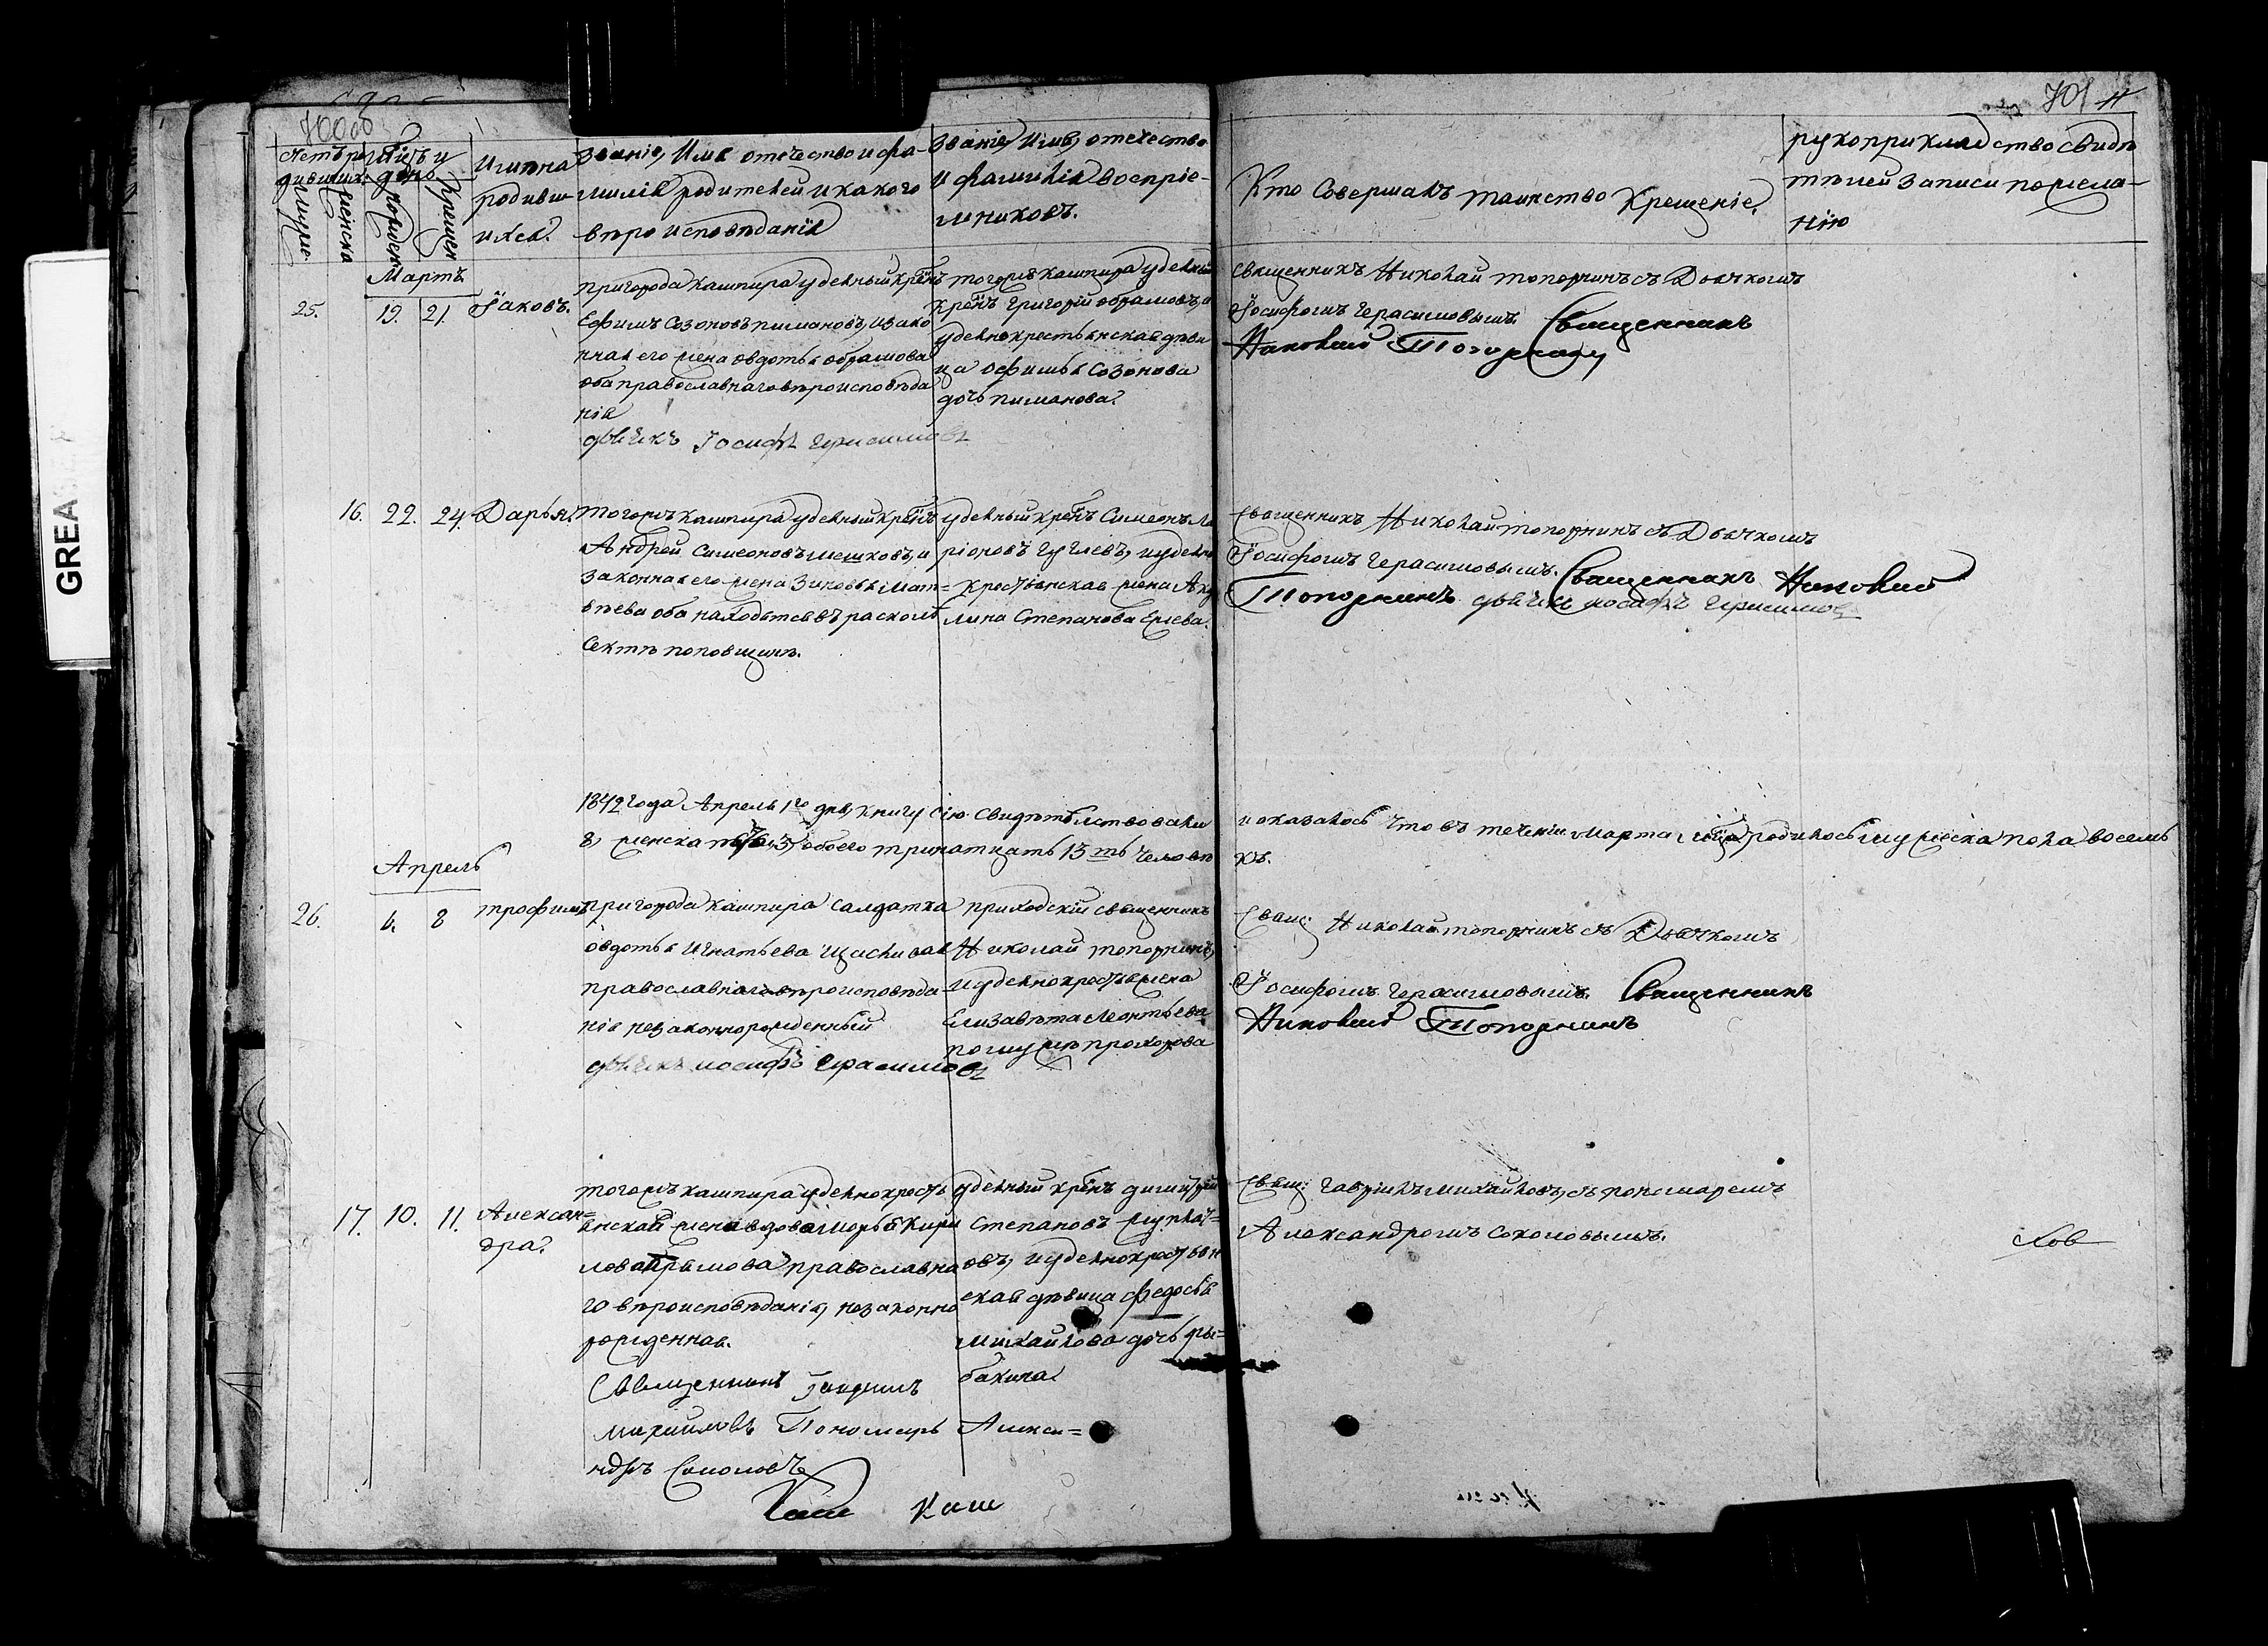 700об
701
Счетъ ро
дившихся
Мѣсяцъ и
день
Мужес.
Женска
рожден.
Крещен
Имяна
родивш
ихся.
Званіе, Имя отчество и фа-
милія родителей и какого
вѣроисповѣданія
Званіе, Имя, отечество
и фамилія Воспріе-
мниковъ.
Кто Совершалъ таинство Крещеніе.
рукоприкладство свидѣ
тѣлей Записи по жела-
нію
Мартъ
25.
19.
21.
Іаковъ.
пригорода Кашпира удельный крѣнъ
Ефимъ Созоновъ пимановъ, и зако
нная его жена Овдотья Обрамова
оба православнаго вѣроисповѣда
нія
дьячекъ Іосифъ Герасимовъ
тогожъ кашпира удельный
крѣнъ Григорій Обрамовъ, и
удельнокрестьянская дѣви
ца Офимья Созонова
дочь пиманова.
Священникъ Николай топорнинъ съ Дьячкомъ
Іосифомъ Герасимовымъ. Священникъ
Николай Топорнинъ
16.
22.
24.
Дарья.
тогожъ кашпира удельный крѣнъ
Андрей Симеоновъ мешковъ, и
законная его жена Зиновья Мат=
вѣева оба находятся въ расколѣ
Сектѣ поповщинѣ.
удельный крѣнъ Симеонъ Ла
ріоновъ Гуглевъ, и удельно
Крестьянская жена Аку
лина Степанова Ежева.
Священникъ Николай топорнинъ съ Дьячкомъ
Іосифомъ Герасимовымъ. Священникъ Николай
Топорнинъ дьячекъ Иосифъ Герасимовъ
1842 года Апрель 1го дня, книгу сію Свидѣтельствовали и оказалось что въ теченіи Марта мѣца родилось мужеска пола восемь
8, женска пять, 5, обоего тринатцать 13ть человѣ къ.
Апрель
26.
6.
8
трофимъ
пригорода Кашпира салдатка
Овдотья Игнатьева Щасливая
православнаго вѣроисповѣда
нія незаконнорожденный
дьячекъ иосифъ Герасимовъ
приходскій священникъ
Николай топорнинъ,
и удельнокрестья жена
Елизавѣта Леонтьева
по мужѣ прохорова
Свящ: Николай топорнинъ съ Дьячкомъ
Іосифомъ Герасимовымъ. Священникъ
Николай Топорнинъ
17.
10.
11.
Алексан=
дра.
тогожъ кашпира удельнокресть
янская жена вдова Марья Кири
лова православна
го вѣроисповѣданія, незаконно
рожденная.
Священникъ Гавриилъ
михайловъ Пономарь Алекса=
ндръ Соколовъ
удельный крѣнъ димитрій
Степановъ
овъ, и удельнокрестьян
ская дѣвица Федосья
михайлова дочь ры=
бакина
Свящ: Гавріилъ михайловъ, съ пономаремъ
Александромъ Соколовымъ.
Каш
Каш